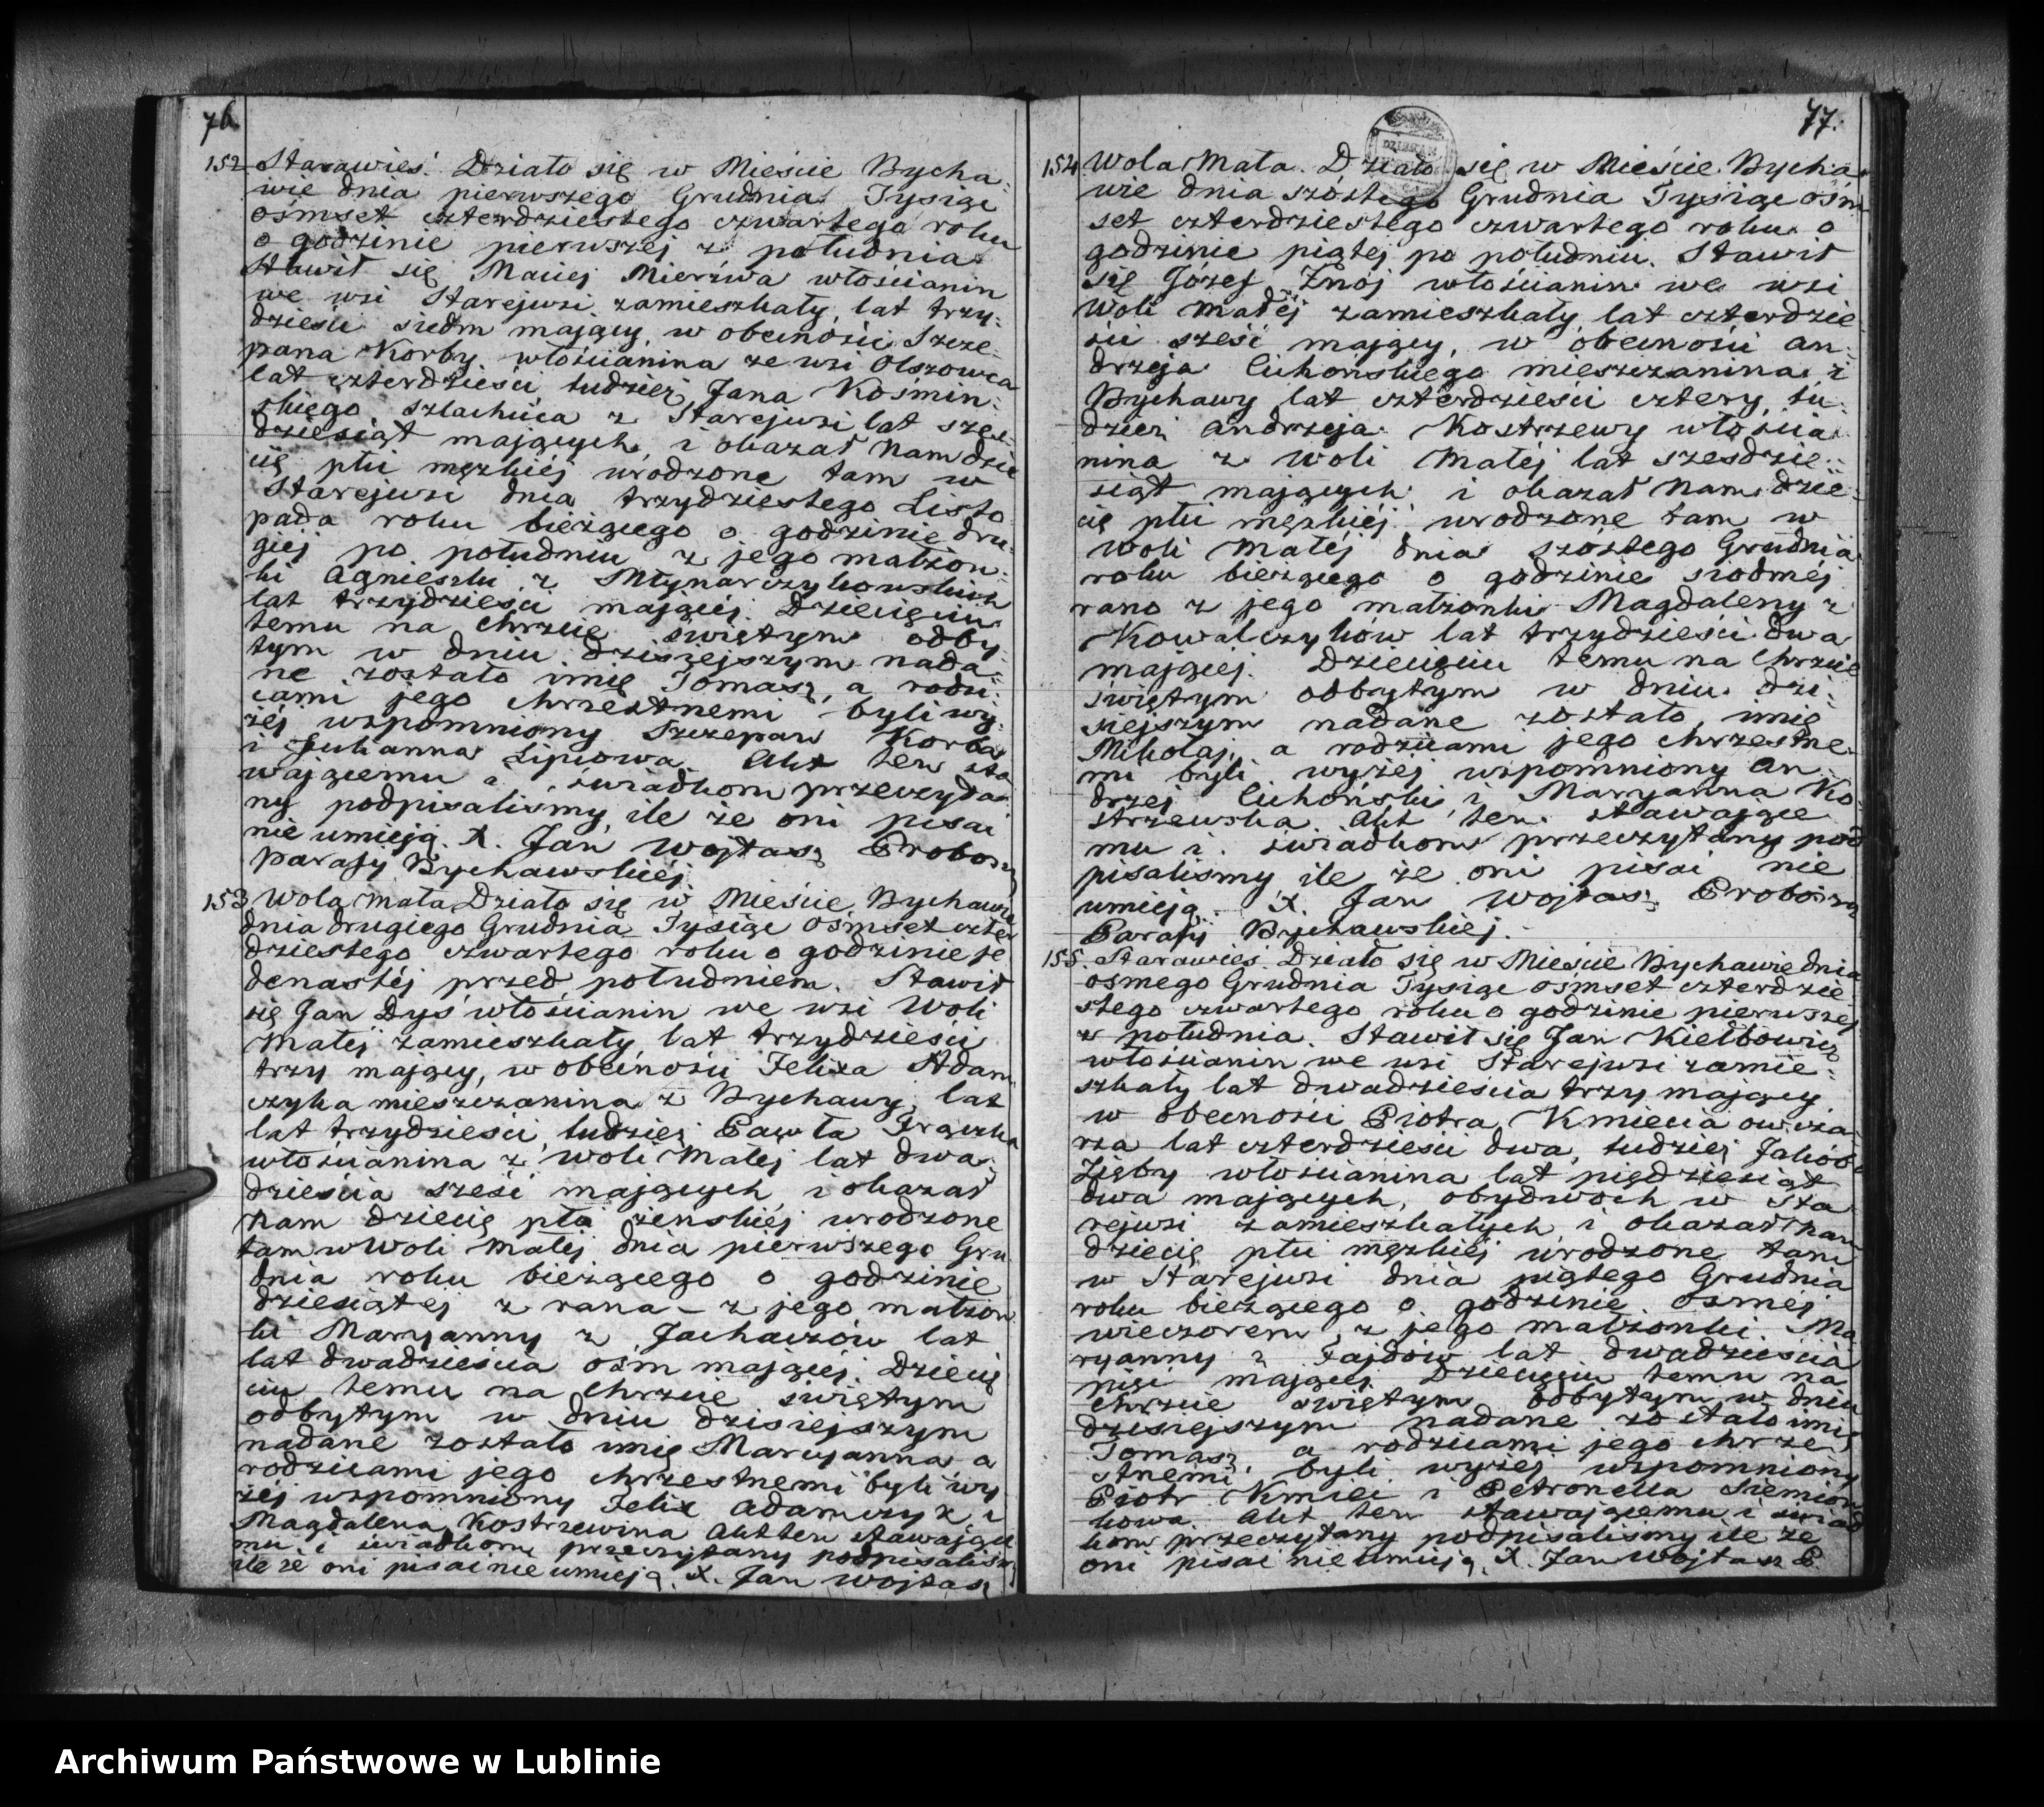 76.
152 Starawieś. Działo się w Mieście Bycha-
wie dnia pierwszego Grudnia Tysiąc
ośmset czterdziestego czwartego roku
o godzinie pierwszej z południa
Stawił się Maciej Mierzwa włościanin
we wsi Starejwsi zamieszkały, lat trzy-
dzieści siedm mający, w obecności Szcze-
pana Korby włościanina ze wsi Olszowca
lat czterdzieści tudzież Jana Kośmin-
skiego szlachcica z Starejwsi lat sześ-
dziesiąt mających, i okazał Nam dzie
cię płci męzkiéj urodzone tam w
Starejwsi dnia trzydziestego Listo
pada roku bieżącego o godzinie dru-
giéj po południu z jego małżon-
ki Agnieszki z Młynarczykowskich
lat trzydzieści mającéj. Dziecięciu
temu na chrzcie świętym odby
tym w dniu dzisiejszym nada-
ne zostało imię Tomasz, a rodzi-
cami jego chrzestnemi byli wy-
żéj wspomniony Szczepan Korba
i Juhanna Lipiowa. Akt ten sta
wającemu i świadkom przeczyta-
ny podpisaliśmy, ile że oni pisać
nie umieją. X. Jan Wojtasz Proboszcz
parafy Bychawskiéj
153 Wola Mała Działo się w Mieście Bychawie
dnia drugiego Grudnia Tysiąc ośmset czter
dziestego czwartego roku o godzinie je
denastéj przed południem. Stawił
się Jan Dyś włościanin we wsi Woli
Małéj zamieszkały lat trzydzieści
trzy mający, w obecności Felixa Adam
czyka mieszczanina z Bychawy, lat
lat trzydzieści, tudzież Pawła
włościanina z Woli Małéj lat dwa-
dzieścia sześć mających, i okazał
Nam dziecię płci żeńskiéj urodzone
tam w Woli Małéj dnia pierwszego Gru
dnia roku bieżącego o godzinie
dziesiątéj z rana – z jego małżon
ki Maryanny z Jachaczów lat
lat dwadzieścia ośm mającéj. Dziecię
ciu temu na Chrzcie świętym
odbytym w dniu dzisiejszym
nadane zostało imię Maryanna, a
rodzicami jego chrzestnemi byli wy
żéj wspomniony Felix Adamczyk i
Magdalena Kostrzewina Akt ten stawające
mu i świadkom przeczytany podpisaliśmy
ile że oni pisać nie umieją. X. Jan Wojtasz
77.
154 Wola Mała. Działo się w Mieście Bycha
wie dnia szóstego Grudnia Tysiąc ośm
set czterdziestego czwartego roku o
godzinie piątéj po południu. Stawił
się Józef Żnój włościanin we wsi
Woli Małéj zamieszkały, lat czterdzie
ści sześć mający, w obecności An-
drzeja Cichońskiego mieszczanina z
Bychawy lat czterdzieści cztery, tu-
dzież Andrzeja Kostrzewy włościa-
nina z Woli Małéj lat sześdzie-
siąt mających i okazał Nam dzie-
cię płci męzkiéj urodzone tam w
Woli Małéj dnia szóstego Grudnia
roku bieżącego o godzinie siódméj
rano z jego małżonki Magdaleny z
Kowalczyków lat trzydzieści dwa
mającéj. Dziecięciu temu na Chrzcie
świętym odbytym w dniu dzi-
siejszym nadane zostało imię
Mikołaj, a rodzicami jego chrzestne-
mi byli wyżéj wspomniony An-
drzej Cichoński i Maryanna Ko-
strzewska Akt ten stawające
mu i świadkom przeczytany pod
pisaliśmy ile że oni pisać nie
umieją. X. Jan Wojtasz Proboszcz
Parafij Bychawskiéj.
155. Starawieś. Działo się w Mieście Bychawie dnia
ósmego Grudnia Tysiąc ośmset czterdzie-
stego czwartego roku o godzinie pierwszéj
z południa. Stawił się Jan Kiełbowicz
włościanin we wsi Starejwsi zamie-
szkały lat dwadzieścia trzy mający
w obecności Piotra Kmiecia owcza-
rza lat czterdzieści dwa, tudzież Jakóba
Zięby włościanina lat piędziesiąt
dwa mających, obydwóch w Sta
rejwsi zamieszkałych i okazał Nam
dziecię płci męzkiéj urodzone tam
w Starejwsi dnia piątego Grudnia
roku bieżącego o godzinie ósméj
wieczorem, z jego małżonki Ma
ryanny z Fajdów lat dwadzieścia
pięć mającéj. Dziecięciu temu na
Chrzcie świętym odbytym w dniu
dzisiejszym nadane zostało imię
Tomasz, a rodzicami jego chrze
stnemi byli wyżéj wspomniony
Piotr Kmieć i Petronella Siemion
kowa Akt ten stawającemu i świad
kom przeczytany podpisaliśmy ile że
oni pisać nie umieją. X. Jan Wojtasz P.
Archiwum Państwowe w Lublinie